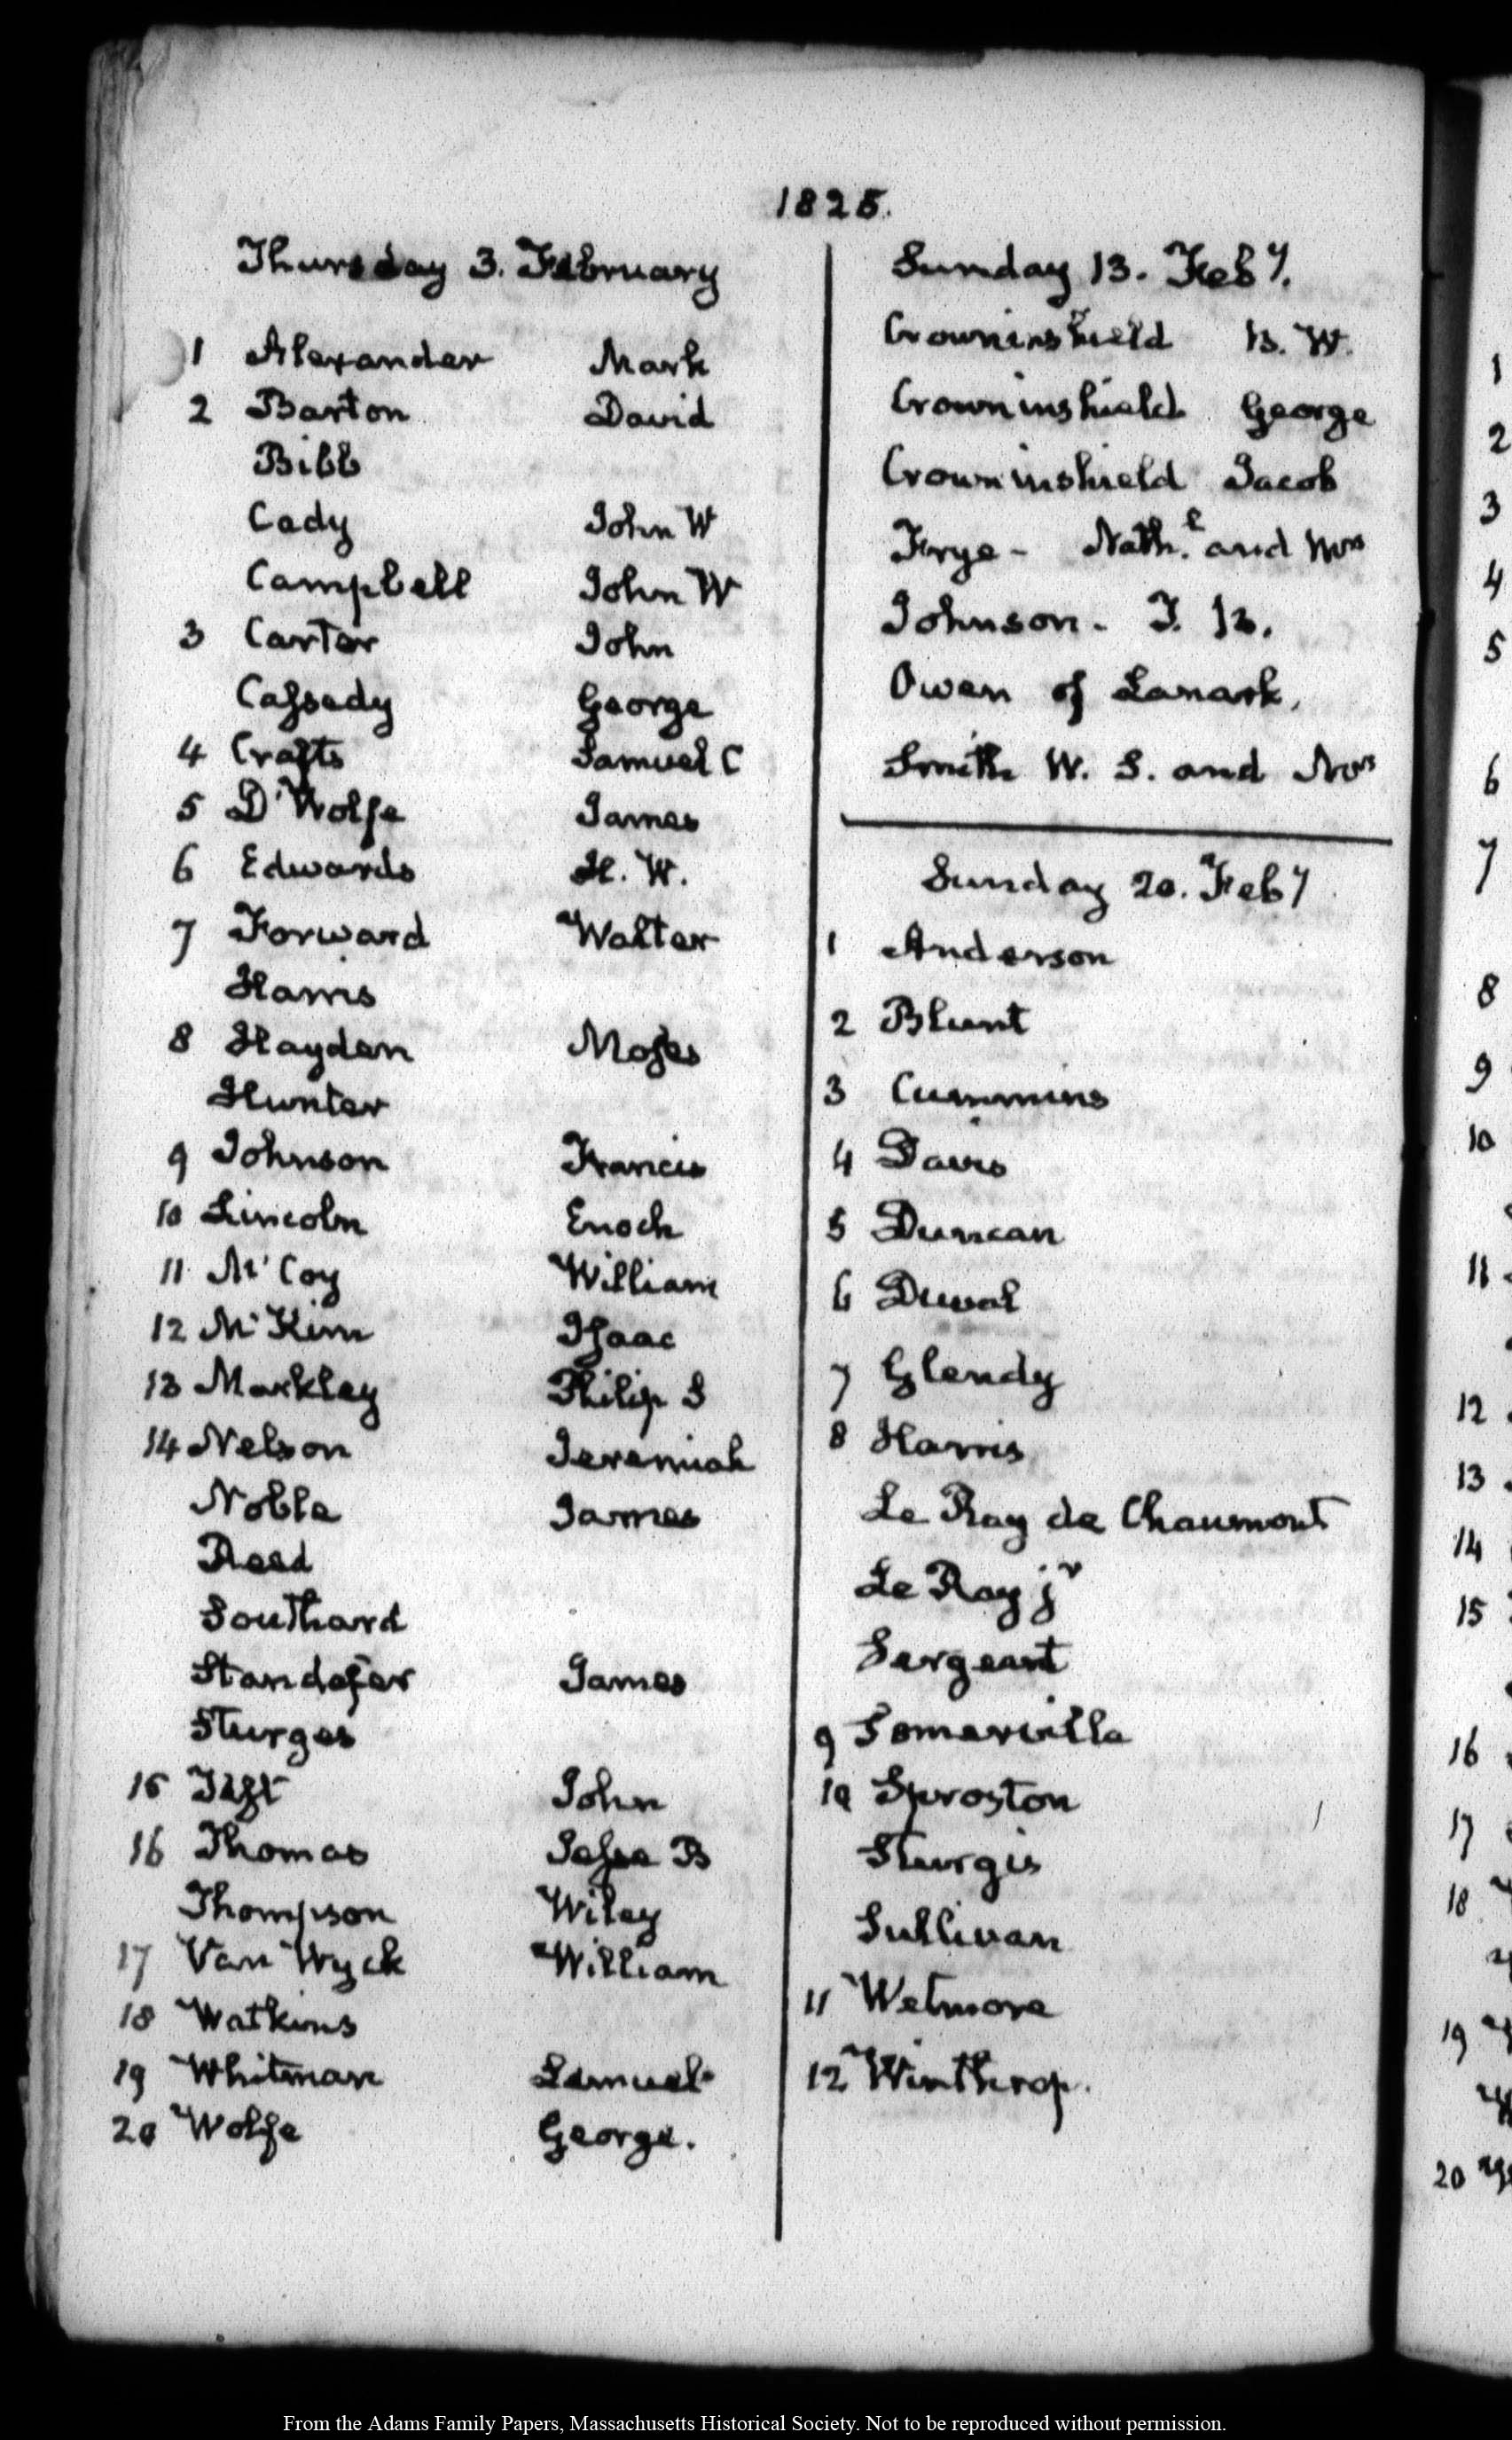 1825.
Thursday 3. February
1 Alexander Mark
2 Barton David
Bibb
Cady John W
Campbell John W
3 Carter John
Cassedy George
4 Crafts Samuel C
5 D'Wolfe James
6 Edwards H. W.
7 Forward Walter
Harris
8 Hayden Moses
Hunter
9 Johnson Francis
10 Lincoln Enoch
11 McCoy William
12 McKim Isaac
13 Markley Philip S
14 Nelson Jeremiah
Noble James
Reed
Southard
Standefer James
Sturges
15 Test John
16 Thomas Jesse B
Thompson Wiley
17 Van Wyck William
18 Watkins
19 Whitman Lemuel
20 Wolfe George.
Sunday 13. Feby.
Crowninshield B. W.
Crowninshield George
Crowninshield Jacob
Frye - Nathl. and Mrs
Johnson - J. B.
Owen of Lanark.
Smith W. S. and Mrs
Sunday 20. Feby
1 Anderson
2 Blunt
3 Cummins
4 Davis
5 Duncan
6 Duval
7 Glendy
8 Harris
Le Ray de Chaumont
Le Ray jr
Sergeant
9 Somerville
10 Sproston
Sturgis
Sullivan
11 Wetmore
12 Winthrop.
1
2
3
4
5
6
7
8
9
10
11
12
13
14
15
16
17
18
19
20
From the Adams Family Papers, Massachusetts Historical Society. Not to be reproduced without permission.